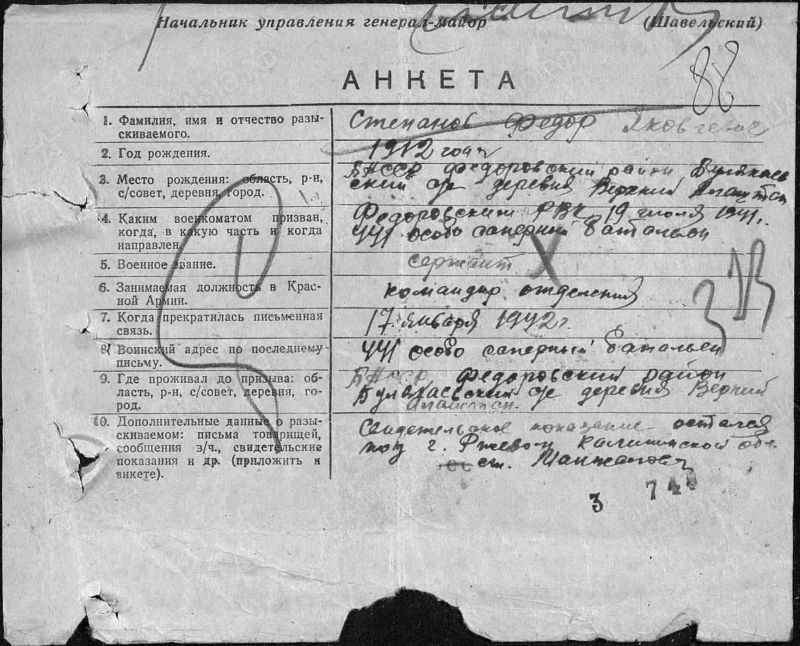 Начальник управления генерал-майор (Шавельский)
88
АНКЕТА
1. Фамилия, имя и отчество разы-
скиваемого.
Степанов Федор Яковлевич
2. Год рождения.
1912 года
3. Место рождения: область, р-н,
с/совет, деревня, город.
БАССР Федоровский район
ский с/с деревня Верхний
4. Каким военкоматом призван,
когда, в какую часть и когда
направлен.
Федоровским РВК 19 июля 1941г.
441 особо саперный батальон
5. Военное звание.
сержант
6. Занимаемая должность в Крас-
ной Армии.
командир отделения
7. Когда прекратилась письменная
связь.
17 января 1942г.
8. Воинский адрес по последнему
письму.
441 особо саперный батальон
9. Где проживал до призыва: об-
ласть, р-н, с/совет, деревня, го-
род.
БАССР Федоровский район
с/с деревня Верхний
10. Дополнительные данные о разы-
скиваемом: письма товарищей,
сообщения в/ч., свидетельские
показания и др. (приложить к
анкете).
Свидетельское показание остался
под г. Ржевом Калининской обл.
ст.
3 74